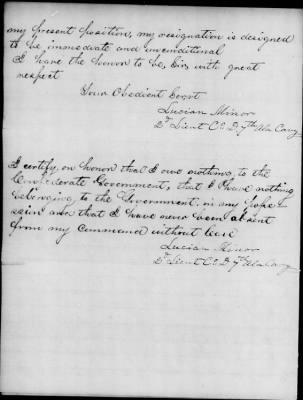 my present position, my resignation is designed
to be immediate and unconditional
I have the honor to be, Sir, with great
respect
Your Obedient Servt
Lucian Minor
2d Lieut Co D, 7th Ala Cavy
I certify, on honor that I owe nothing, to the
Confederate Government, that I have nothing
belonging, to the Government, in my posses-
sion and that I have never been absent
from my command without leave
Lucian Minor
2d Lieut Co D 7th Ala Cavy